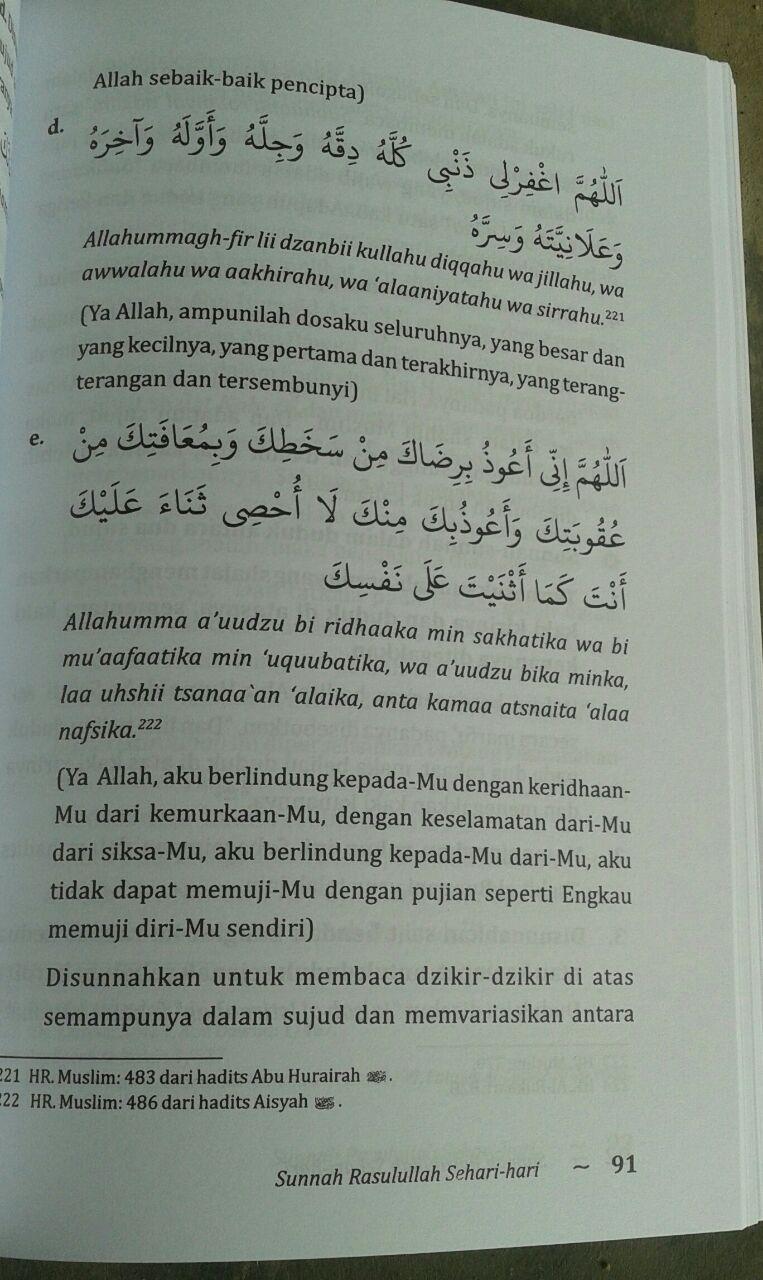 Allah sebaik-baik pencipta)
d. اَللّٰهُمَّ اغْفِرْلِى ذَنْبِى كُلَّهُ دِقَّهُ وَجِلَّهُ وَأَوَّلَهُ وَآخِرَهُ
وَعَلَانِيَّتَهُ وَسِرَّهُ
Allahummagh-fir lii dzanbii kullahu diqqahu wa jillahu, wa
awwalahu wa aakhirahu, wa ‘alaaniyatahu wa sirrahu.²²¹
(Ya Allah, ampunilah dosaku seluruhnya, yang besar dan
yang kecilnya, yang pertama dan terakhirnya, yang terang-
terangan dan tersembunyi)
e. اَللّٰهُمَّ إِنِّى أَعُوذُ بِرِضَاكَ مِنْ سَخَطِكَ وَبِمُعَافَتِكَ مِنْ
عُقُوبَتِكَ وَأَعُوذُبِكَ مِنْكَ لَا أُحْصِى ثَنَاءَ عَلَيْكَ
أَنْتَ كَمَا أَثْنَيْتَ عَلَى نَفْسِكَ
Allahumma a’uudzu bi ridhaaka min sakhatika wa bi
mu’aafaatika min ‘uquubatika, wa a’uudzu bika minka,
laa uhshii tsanaa`an ‘alaika, anta kamaa atsnaita ‘alaa
nafsika.²²²
(Ya Allah, aku berlindung kepada-Mu dengan keridhaan-
Mu dari kemurkaan-Mu, dengan keselamatan dari-Mu
dari siksa-Mu, aku berlindung kepada-Mu dari-Mu, aku
tidak dapat memuji-Mu dengan pujian seperti Engkau
memuji diri-Mu sendiri)
Disunnahkan untuk membaca dzikir-dzikir di atas
semampunya dalam sujud dan memvariasikan antara
221 HR. Muslim: 483 dari hadits Abu Hurairah .
222 HR. Muslim: 486 dari hadits Aisyah .
Sunnah Rasulullah Sehari-hari ~ 91